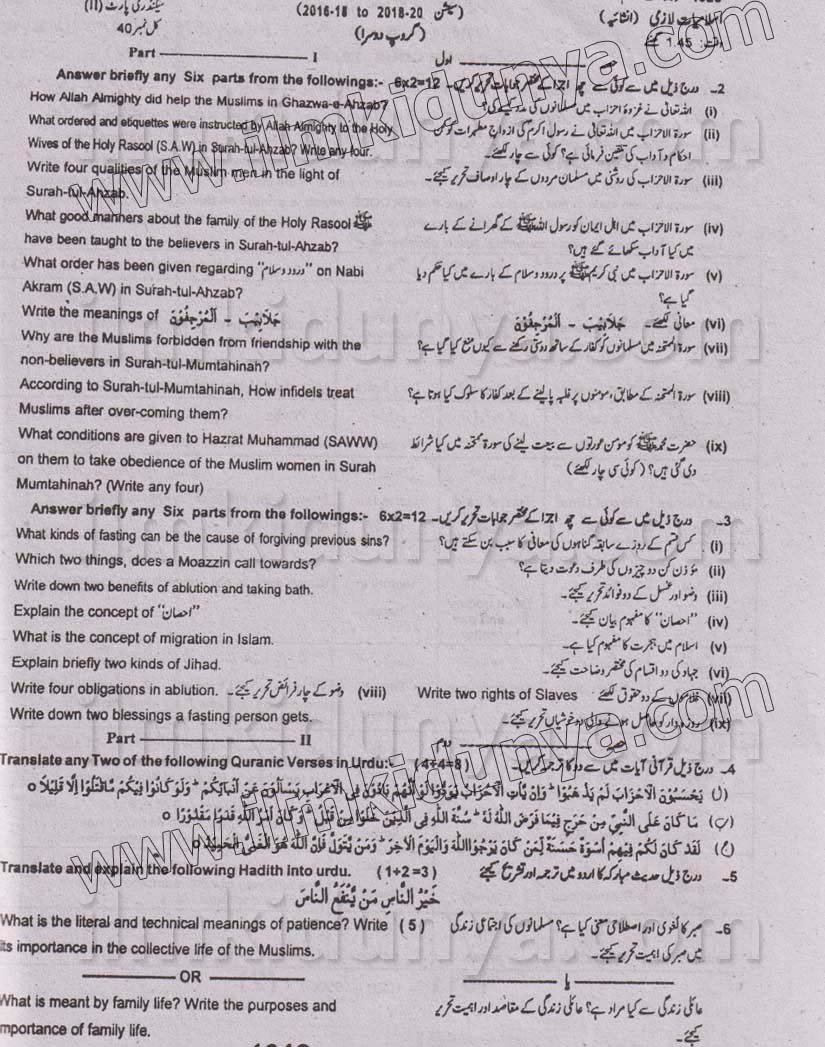 (سیشن 2016-18 to 2018-20) سیکنڈری پارٹ (II)
اسلامیات لازمی (انشائیہ) (گروپ دوسرا) کل نمبر 40
وقت: 1.45 گھنٹے
Part I حصہ اول
Answer briefly any Six parts from the followings:- 6x2=12 2۔ درج ذیل میں سے کوئی سے چھ اجزا کے مختصر جوابات تحریر کریں۔
How Allah Almighty did help the Muslims in Ghazwa-e-Ahzab? (i) اللہ تعالیٰ نے غزوۂ احزاب میں مسلمانوں کی مدد کیسے کی؟
What ordered and etiquettes were instructed by Allah Almighty to the Holy (ii) سورۃ الاحزاب میں اللہ تعالیٰ نے رسول اکرم کی ازواج مطہرات کو کن
Wives of the Holy Rasool (S.A.W) in Surah-tul-Ahzab? Write any four. احکام و آداب کی تلقین فرمائی ہے؟ کوئی سے چار لکھئے۔
Write four qualities of the Muslim men in the light of (iii) سورۃ الاحزاب کی روشنی میں مسلمان مردوں کے چار اوصاف تحریر کیجئے۔
Surah-tul-Ahzab.
What good manners about the family of the Holy Rasool ﷺ (iv) سورۃ الاحزاب میں اہل ایمان کو رسول اللہ ﷺ کے گھرانے کے بارے
have been taught to the believers in Surah-tul-Ahzab? میں کیا آداب سکھائے گئے ہیں؟
What order has been given regarding "درود و سلام" on Nabi (v) سورۃ الاحزاب میں نبی کریم ﷺ پر درود و سلام کے بارے میں کیا حکم دیا
Akram (S.A.W) in Surah-tul-Ahzab? گیا ہے؟
Write the meanings of جَلَابِیْبَ - اَلْمُرْجِفُوْنَ (vi) معانی لکھئے۔ جَلَابِیْبَ - اَلْمُرْجِفُوْنَ
Why are the Muslims forbidden from friendship with the (vii) سورۃ الممتحنہ میں مسلمانوں کو کفار کے ساتھ دوستی رکھنے سے کیوں منع کیا گیا ہے؟
non-believers in Surah-tul-Mumtahinah?
According to Surah-tul-Mumtahinah, How infidels treat (viii) سورۃ الممتحنہ کے مطابق، مومنوں پر غلبہ پا لینے کے بعد کفار کا سلوک کیا ہوتا ہے؟
Muslims after over-coming them?
What conditions are given to Hazrat Muhammad (SAWW) (ix) حضرت محمد ﷺ کو مومن عورتوں سے بیعت لینے کی سورۃ ممتحنہ میں کیا شرائط
on them to take obedience of the Muslim women in Surah دی گئی ہیں؟ (کوئی سی چار لکھئے)
Mumtahinah? (Write any four)
Answer briefly any Six parts from the followings:- 6x2=12 3۔ درج ذیل میں سے کوئی سے چھ اجزا کے مختصر جوابات تحریر کریں۔
What kinds of fasting can be the cause of forgiving previous sins? (i) کس قسم کے روزے سابقہ گناہوں کی معافی کا سبب بن سکتے ہیں؟
Which two things, does a Moazzin call towards? (ii) مؤذن کن دو چیزوں کی طرف دعوت دیتا ہے؟
Write down two benefits of ablution and taking bath. (iii) وضو اور غسل کے دو فوائد تحریر کیجئے۔
Explain the concept of "احسان" (iv) "احسان" کا مفہوم بیان کیجئے۔
What is the concept of migration in Islam. (v) اسلام میں ہجرت کا مفہوم کیا ہے۔
Explain briefly two kinds of Jihad. (vi) جہاد کی دو اقسام کی مختصر وضاحت کیجئے۔
Write four obligations in ablution. (viii) وضو کے چار فرائض تحریر کیجئے۔ Write two rights of Slaves (vii) غلاموں کے دو حقوق لکھئے
Write down two blessings a fasting person gets. (ix) روزہ دار کو حاصل ہونے والی دو خوشیاں تحریر کیجئے۔
Part II حصہ دوم
Translate any Two of the following Quranic Verses in Urdu:- (4+4=8) 4۔ درج ذیل قرآنی آیات میں سے دو کا ترجمہ کریں۔
(ا) یَحْسَبُوْنَ الْاَحْزَابَ لَمْ یَذْهَبُوْا ۚ وَاِنْ یَّاْتِ الْاَحْزَابُ یَوَدُّوْا لَوْ اَنَّهُمْ بَادُوْنَ فِی الْاَعْرَابِ یَسْاَلُوْنَ عَنْ اَنْبَآئِكُمْ ؕ وَلَوْ كَانُوْا فِیْكُمْ مَّا قٰتَلُوْا اِلَّا قَلِیْلًا o
(ب) مَا كَانَ عَلَی النَّبِیِّ مِنْ حَرَجٍ فِیْمَا فَرَضَ اللهُ لَهٗ ؕ سُنَّةَ اللهِ فِی الَّذِیْنَ خَلَوْا مِنْ قَبْلُ ؕ وَكَانَ اَمْرُ اللهِ قَدَرًا مَّقْدُوْرًا o
(ج) لَقَدْ كَانَ لَكُمْ فِیْهِمْ اُسْوَةٌ حَسَنَةٌ لِّمَنْ كَانَ یَرْجُوا اللهَ وَالْیَوْمَ الْاٰخِرَ ؕ وَمَنْ یَّتَوَلَّ فَاِنَّ اللهَ هُوَ الْغَنِیُّ الْحَمِیْدُ o
Translate and explain the following Hadith into urdu. (1+2=3) 5۔ درج ذیل حدیث مبارکہ کا اردو میں ترجمہ اور تشریح کیجئے
خَیْرُ النَّاسِ مَنْ یَّنْفَعُ النَّاسَ
What is the literal and technical meanings of patience? Write (5) 6۔ صبر کا لغوی اور اصطلاحی معنی کیا ہے؟ مسلمانوں کی اجتماعی زندگی
its importance in the collective life of the Muslims. میں صبر کی اہمیت تحریر کیجئے۔
OR یا
What is meant by family life? Write the purposes and عائلی زندگی سے کیا مراد ہے؟ عائلی زندگی کے مقاصد اور اہمیت تحریر
mportance of family life. کیجئے۔
www.ilmkidunya.com
www.ilmkidunya.com
ilmkidunya.com
ilmkidunya.com
ilmkidunya.com
ilmkidunya.com